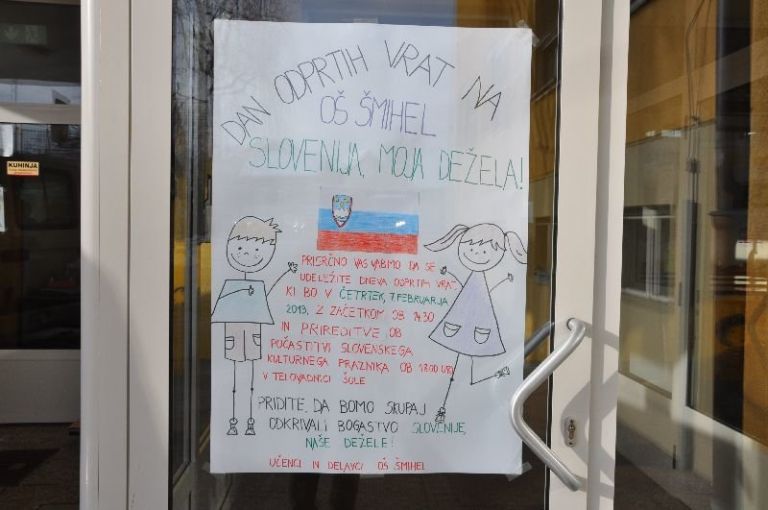 KUHINJA
DAN ODPRTIH VRAT NA
OŠ ŠMIHEL
SLOVENIJA, MOJA DEŽELA!
PRISRČNO VAS VABIMO DA SE
UDELEŽITE DNEVA ODPRTIH VRAT,
KI BO V ČETRTEK, 7. FEBRUARJA
2013, Z ZAČETKOM OB 14:30
IN PRIREDITVE OB
POČASTITVI SLOVENSKEGA
KULTURNEGA PRAZNIKA OB 18:00 URI
V TELOVADNICI ŠOLE
PRIDITE, DA BOMO SKUPAJ
ODKRIVALI BOGASTVO SLOVENIJE,
NAŠE DEŽELE!
UČENCI IN DELAVCI OŠ ŠMIHEL